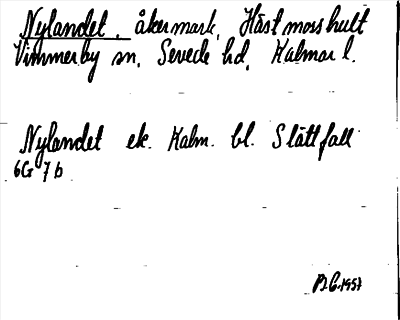 Nylandet, åkermark, Hästmosshult
Vimmerby sn, Sevede hd, Kalmar l.
Nylandet ek. Kalm. bl. Slättfall
6G 7b
1957